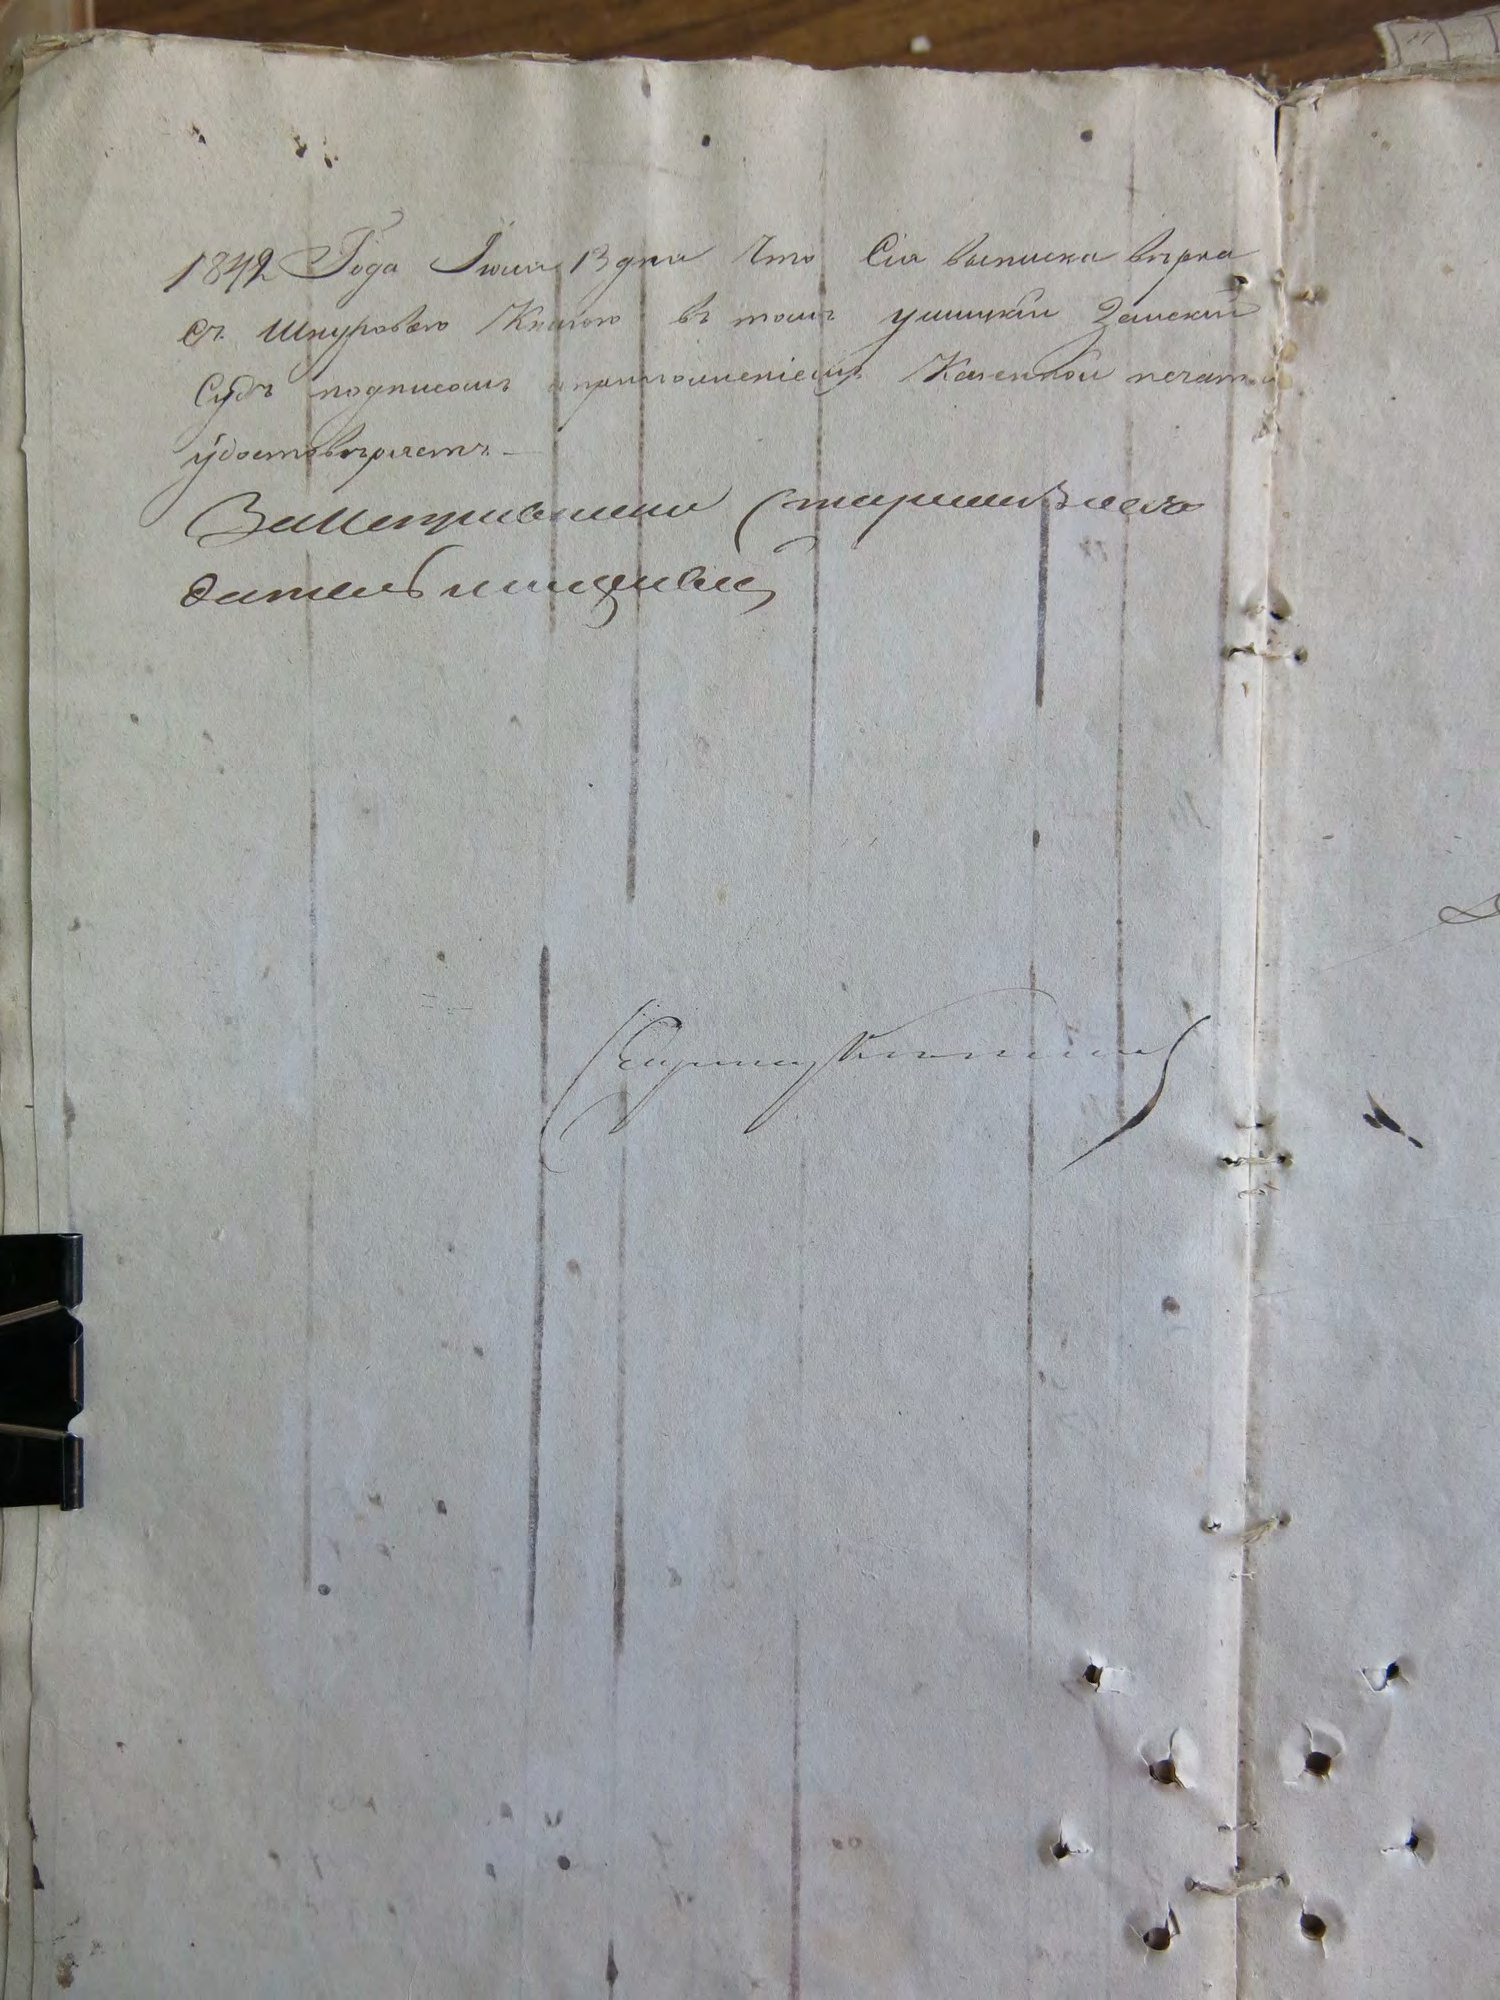 1842 Года Іюня 13 дня Что Сія выписка вѣрна
съ Шнуровою Книгою въ томъ Ушицкій Земскій
Судъ подписомъ и приложеніемъ Казенной печати
удостовѣряетъ. —
За Исправника Старший Засе
датель